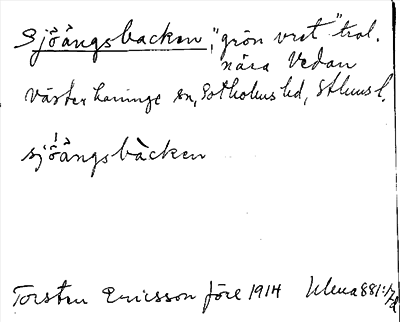 Sjöängsbacken, "grön vret" trol.
nära Vedan
Västerhaninge sn, Sotholms hd, Sthms l.
sjöängsbàcken
Torsten Ericsson före 1914 Ulma 881: